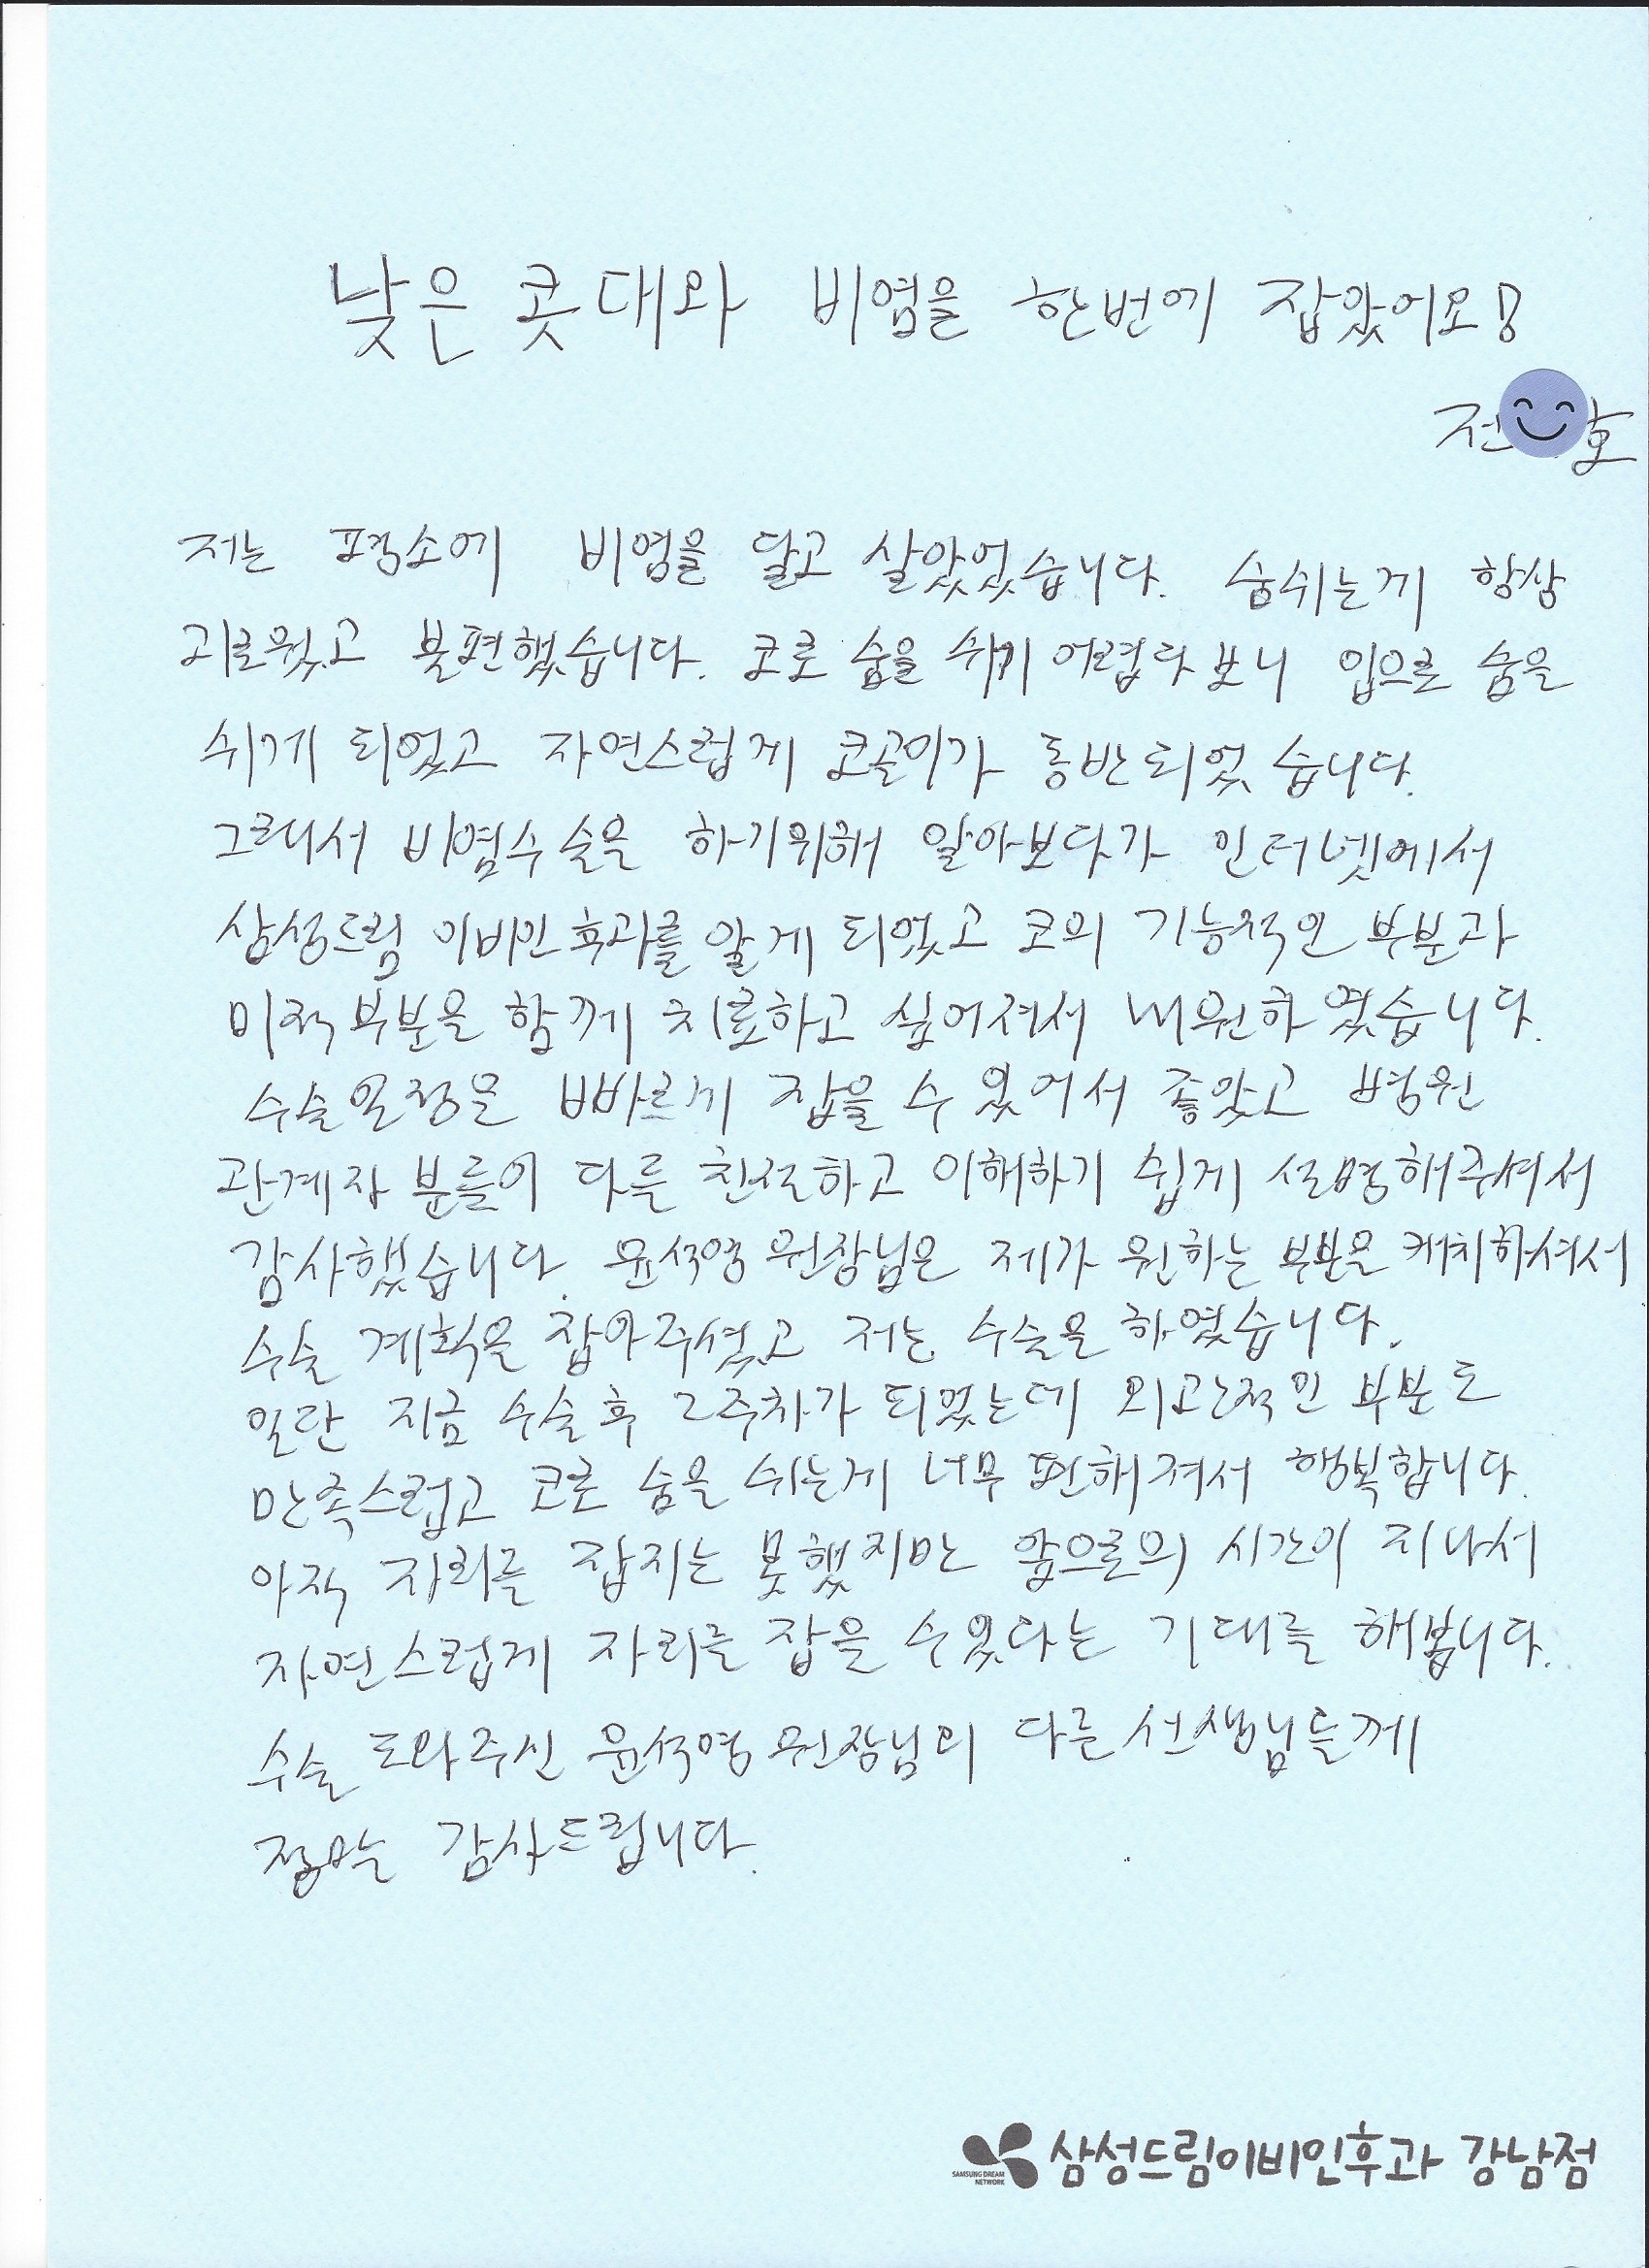 낮은 콧대와 비염을 한번에 잡았어요!
전 호
저는 평소에 비염을 달고 살았었습니다. 숨쉬는게 항상
괴로웠고 불편했습니다. 코로 숨을 쉬기 어렵다보니 입으로 숨을
쉬게 되었고 자연스럽게 코골이가 동반되었습니다.
그래서 비염수술을 하기위해 알아보다가 인터넷에서
삼성드림 이비인후과를 알게 되었고 코의 기능적인 부분과
미적부분을 함께 치료하고 싶어져서 내원하였습니다.
수술일정을 빠르게 잡을 수 있어서 좋았고 병원
관계자 분들이 다들 친절하고 이해하기 쉽게 설명해주셔서
감사했습니다. 윤석영 원장님은 제가 원하는 부분을 캐치하셔서
수술 계획을 잡아주셨고 저는 수술을 하였습니다.
일단 지금 수술후 2주차가 되었는데 외관적인 부분도
만족스럽고 코로 숨을 쉬는게 너무 편해져서 행복합니다.
아직 자리를 잡지는 못했지만 앞으로의 시간이 지나서
자연스럽게 자리를 잡을 수있다는 기대를 해봅니다.
수술 도와주신 윤석영 원장님외 다른 선생님들께
정말 감사드립니다.
SAMSUNG DREAM
NETWORK
삼성드림이비인후과 강남점